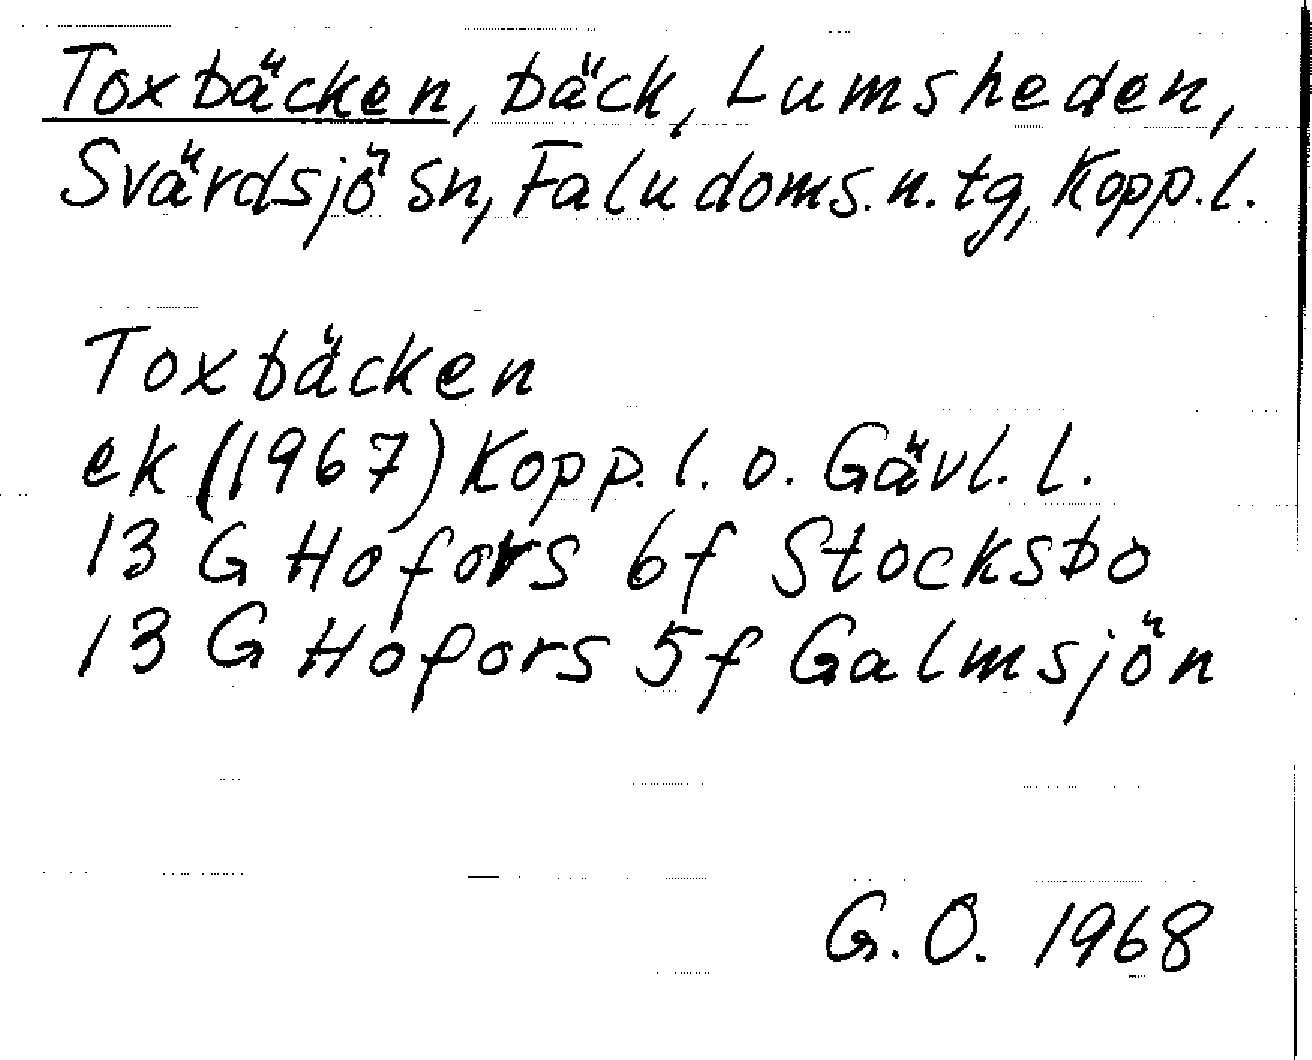 Toxbäcken, bäck, Lumsheden,
Svärdsjö sn, Falu doms.n.tg, Kopp.l.
Toxbäcken
ek (1967) Kopp.l. o. Gävl.l.
13 G Hofors 6f Stocksbo
13 G Hofors 5f Galmsjön
G.O. 1968